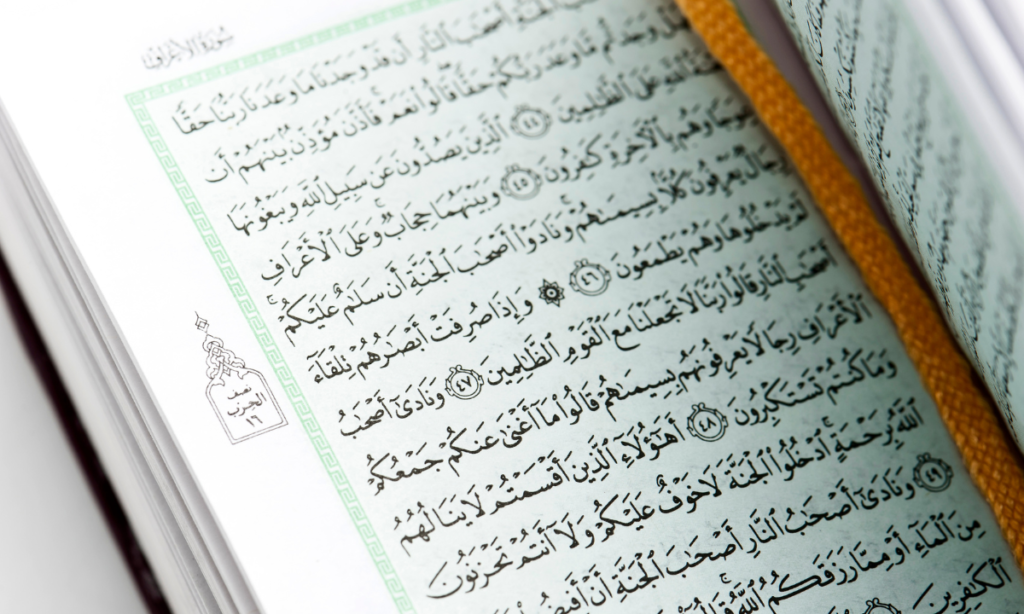 سُورَةُ الأَعْرَافِ
ٱلْجَنَّةِ أَصْحَٰبَ ٱلنَّارِ أَن قَدْ وَجَدْنَا مَا وَعَدَنَا رَبُّنَا حَقًّا
وَجَدتُّم مَّا وَعَدَ رَبُّكُمْ حَقًّا قَالُوا۟ نَعَمْ فَأَذَّنَ مُؤَذِّنٌۢ بَيْنَهُمْ أَن
ٱللَّهِ عَلَى ٱلظَّٰلِمِينَ ٤٤ ٱلَّذِينَ يَصُدُّونَ عَن سَبِيلِ ٱللَّهِ وَيَبْغُونَهَا
وَهُم بِٱلْأٓخِرَةِ كَٰفِرُونَ ٤٥ وَبَيْنَهُمَا حِجَابٌ وَعَلَى ٱلْأَعْرَافِ
رِجَالٌ يَعْرِفُونَ كُلًّۢا بِسِيمَىٰهُمْ وَنَادَوْا۟ أَصْحَٰبَ ٱلْجَنَّةِ أَن سَلَٰمٌ عَلَيْكُمْ
لَمْ يَدْخُلُوهَا وَهُمْ يَطْمَعُونَ ٤٦ ۞ وَإِذَا صُرِفَتْ أَبْصَٰرُهُمْ تِلْقَآءَ
أَصْحَٰبِ ٱلنَّارِ قَالُوا۟ رَبَّنَا لَا تَجْعَلْنَا مَعَ ٱلْقَوْمِ ٱلظَّٰلِمِينَ ٤٧ وَنَادَىٰٓ أَصْحَٰبُ
ٱلْأَعْرَافِ رِجَالًا يَعْرِفُونَهُم بِسِيمَىٰهُمْ قَالُوا۟ مَآ أَغْنَىٰ عَنكُمْ جَمْعُكُمْ
وَمَا كُنتُمْ تَسْتَكْبِرُونَ ٤٨ أَهَٰٓؤُلَآءِ ٱلَّذِينَ أَقْسَمْتُمْ لَا يَنَالُهُمُ
ٱللَّهُ بِرَحْمَةٍ ٱدْخُلُوا۟ ٱلْجَنَّةَ لَا خَوْفٌ عَلَيْكُمْ وَلَآ أَنتُمْ تَحْزَنُونَ
٤٩ وَنَادَىٰٓ أَصْحَٰبُ ٱلنَّارِ أَصْحَٰبَ ٱلْجَنَّةِ أَنْ أَفِيضُوا۟
مِنَ ٱلْمَآءِ أَوْ مِمَّا رَزَقَكُمُ ٱللَّهُ
ٱلْكَٰفِرِينَ
نصف
الحزب
١٦